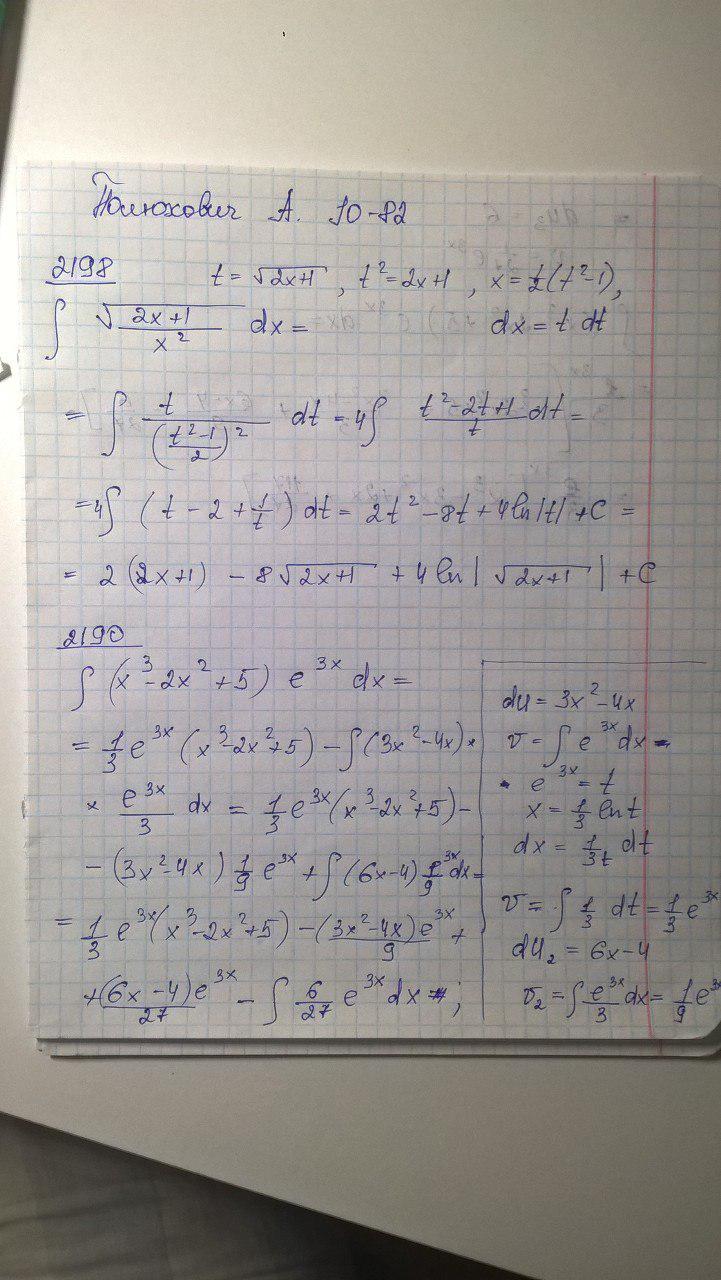 Полюхович А. Ю-82
2198 t = √(2x+1) , t² = 2x+1 , x = 1/2(t²-1),
∫ √((2x+1)/x²) dx = dx = t dt
= ∫ t/((t²-1)/2)² dt = 4∫ (t²-2t+1)/t dt =
= 4∫ (t - 2 + 1/t) dt = 2t² - 8t + 4 ln|t| + C =
= 2(2x+1) - 8√(2x+1) + 4 ln|√(2x+1)| + C
2190
∫ (x³ - 2x² + 5) e^(3x) dx =
= 1/3 e^(3x) (x³ - 2x² + 5) - ∫(3x² - 4x) ×
× e^(3x)/3 dx = 1/3 e^(3x) (x³ - 2x² + 5) -
- (3x² - 4x) 1/9 e^(3x) + ∫(6x-4) 1/9 e^(3x) dx =
= 1/3 e^(3x) (x³ - 2x² + 5) - (3x² - 4x)e^(3x)/9 +
+ (6x - 4)e^(3x)/27 - ∫ 6/27 e^(3x) dx ;
du = 3x² - 4x
v = ∫ e^(3x) dx =
e^(3x) = t
x = 1/3 ln t
dx = 1/(3t) dt
v = ∫ 1/3 dt = 1/3 e^(3x)
du₂ = 6x - 4
v₂ = ∫ e^(3x)/3 dx = 1/9 e^(3x)